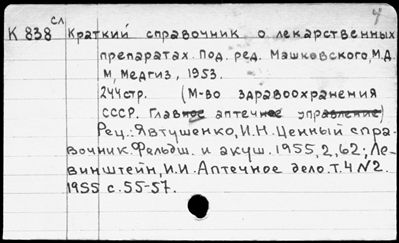 4
сл
К 838 Краткий справочник о лекарственных
препаратах. Под. ред. Машковского, М.Д.
М, Медгиз, 1953.
244 стр. (М-во здравоохранения
СССР. Главное аптечное управление)
Рец.: Явтушенко, И.Н. Ценный спра-
вочник. Фельдш. и акуш. 1955, 2, 62; Ле-
винштейн, И.И. Аптечное дело. Т. 4 N2.
1955 с. 55-57.